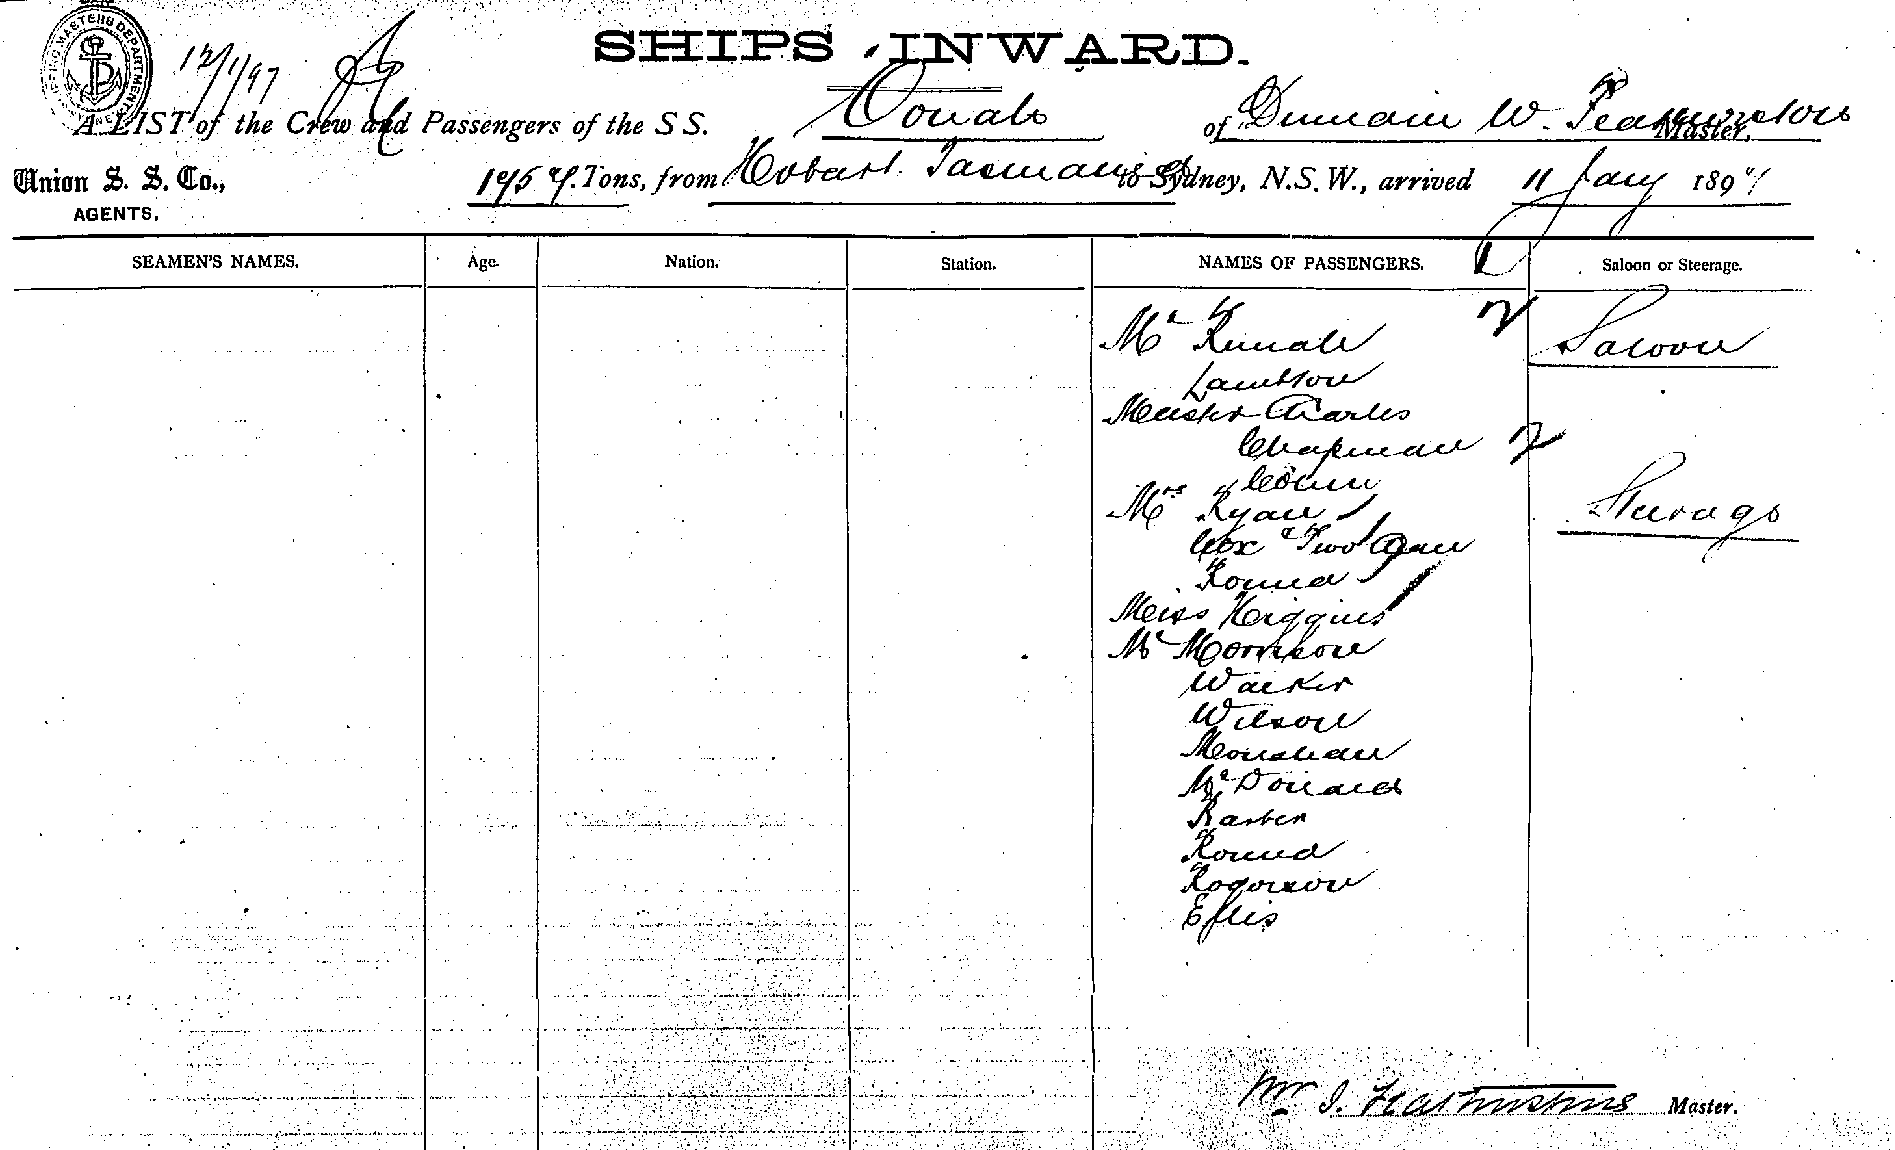 SHIPPING MASTERS DEPARTMENT
12/1/97
SHIPS INWARD.
A LIST of the Crew and Passengers of the S S. Oonah of Dunedin W. Featherstone Master,
Union S. S. Co.,
AGENTS.
1757 Tons, from Hobart. Tasmania to Sydney, N.S.W., arrived 11 Jany 1897
SEAMEN'S NAMES. Age. Nation. Station. NAMES OF PASSENGERS. Saloon or Steerage.
Mr Saloon
Lambton
Master Charles
Chapman
Mrs Ryan Steerage
Cox & Two
Round
Miss Higgins
Mr Morrison
Walker
Wilson
Monahan
McDonald
Barber
Round
Rogerson
Ellis
Master.